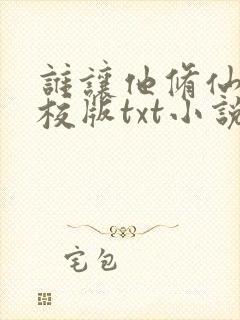 誰讓他修仙
校版txt小說
宅包